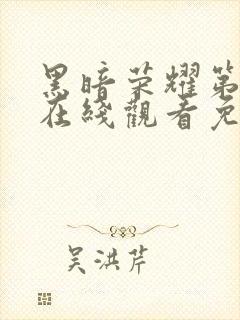 黑暗荣耀第
在线观看免
吴洪芹